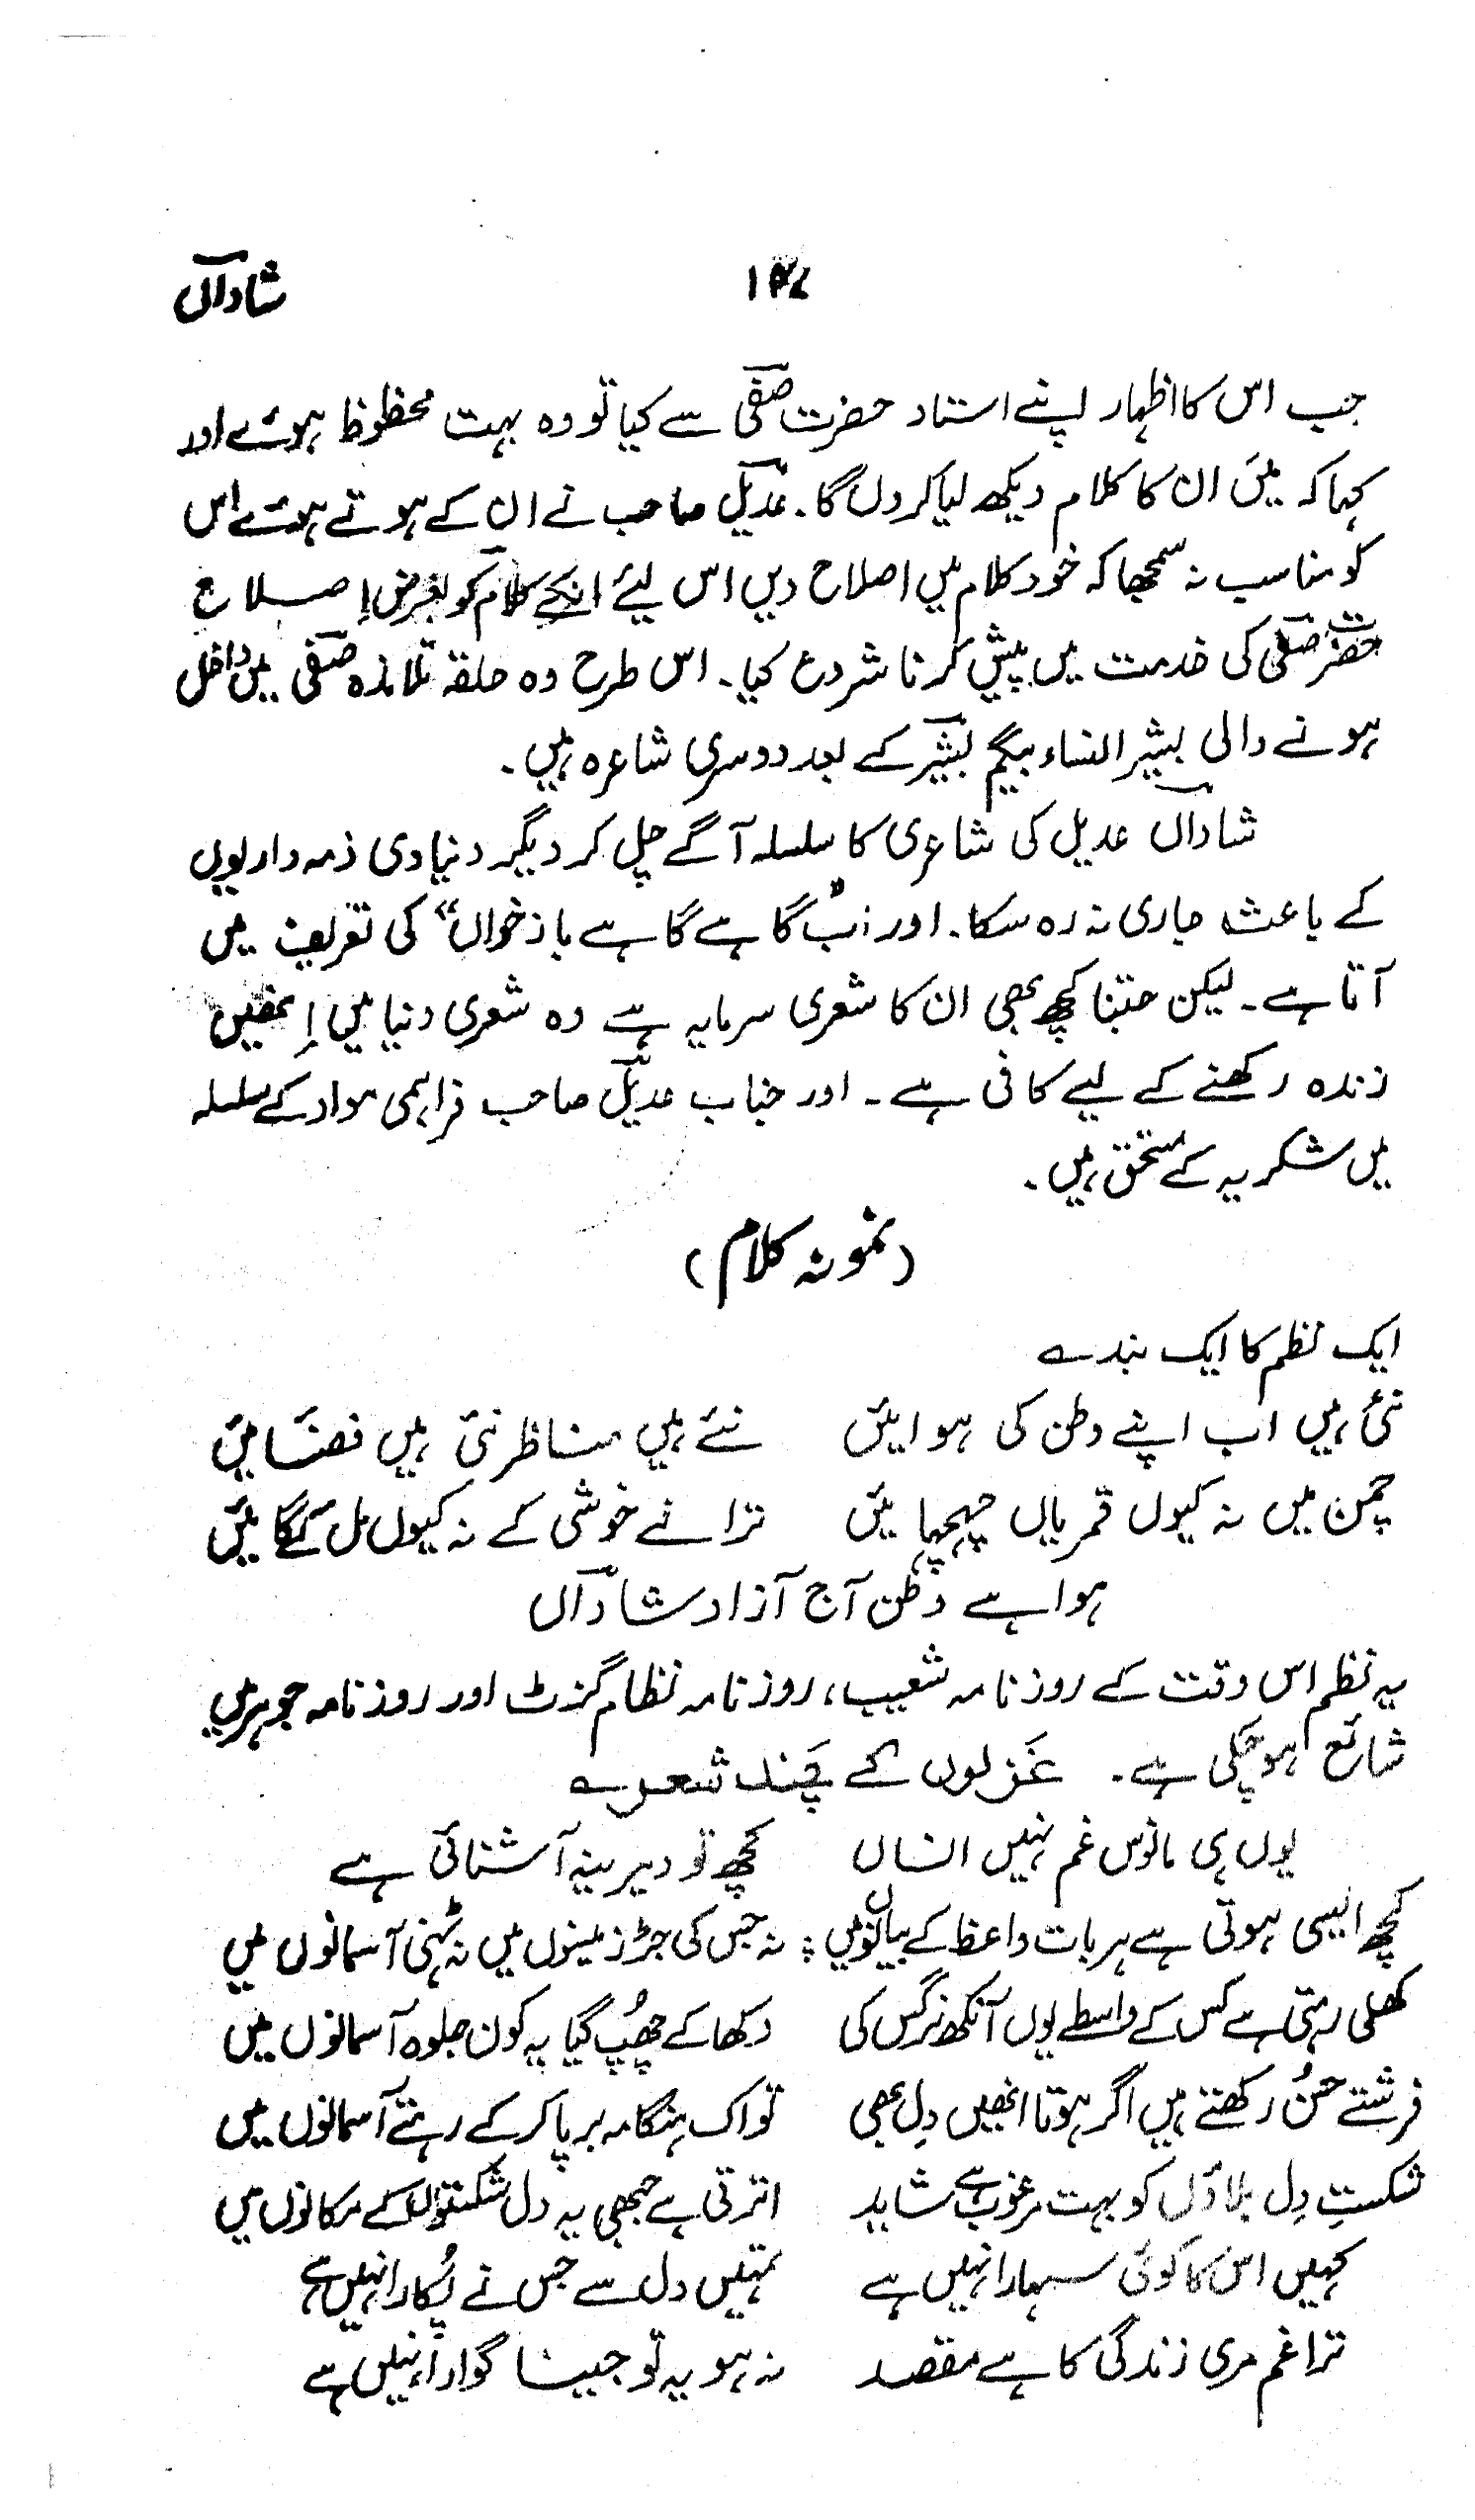 شاداںؔ
جب اس کا اظہار اپنے استاد حضرت صفیؔ سے کیا تو وہ بہت محظوظ ہوئے اور
کہا کہ میں ان کا کلام دیکھ لیا کروں گا۔ عدیلؔ صاحب نے ان کے ہوتے ہوئے اس
کو مناسب نہ سمجھا کہ خود کلام میں اصلاح دیں اس لیئے انکے کلام کو بغرض اِصلاح
حضرت صفیؔ کی خدمت میں پیش کرنا شروع کیا۔ اس طرح وہ حلقہ تلامذہ صفیؔ میں داخل
ہونے والی بشیر النساء بیگم بشیرؔ کے بعد دوسری شاعرہ ہیں۔
شاداںؔ عدیل کی شاعری کا سلسلہ آگے چل کر دیگر دنیاوی ذمہ داریوں
کے باعث جاری نہ رہ سکا۔ اور اب ”گاہے گاہے باز خواں“ کی تعریف میں
آتا ہے۔ لیکن جتنا کچھ بھی ان کا شعری سرمایہ ہے وہ شعری دنیا میں اِنھیں
زندہ رکھنے کے لیے کافی ہے۔ اور جناب عدیلؔ صاحب فراہمی مواد کے سلسلہ
میں شکریہ کے مستحق ہیں۔
(نمونہ کلام)
ایک نظم کا ایک بند ؎
نئی ہیں اب اپنے وطن کی ہوائیں نئے ہیں مناظر نئی ہیں فضائیں
چمن میں نہ کیوں قمریاں چہچہائیں ترانے خوشی کے نہ کیوں مل کے گائیں
ہوا ہے وطن آج آزاد شاداںؔ
یہ نظم اس وقت کے روزنامہ شعیب، روزنامہ نظام گزٹ اور روزنامہ جوہر میں
شائع ہو چکی ہے۔ غزلوں کے چند شعر ؎
یوں ہی مانوس غم نہیں انساں کچھ تو دیرینہ آشنائی ہے
کچھ ایسی ہوتی ہے ہر بات واعظ کے بیانوں میں ؛ نہ جس کی جڑ زمینوں میں نہ ٹہنی آسمانوں میں
کھلی رہتی ہے کس کے واسطے یوں آنکھ نرگس کی دکھا کے چھپ گیا یہ کون جلوہ آسمانوں میں
فرشتے حُسن رکھتے ہیں اگر ہوتا انھیں دِل بھی تو اک ہنگامہ برپا کر کے رہتے آسمانوں میں
شکستِ دِل بلاؤں کو بہت مرغوب ہے شاید اترتی ہے جبھی یہ دل شکستوں کے مکانوں میں
کہیں اس کا کوئی سہارا نہیں ہے تمہیں دل سے جس نے پُکارا نہیں ہے
ترا غم مری زندگی کا ہے مقصد نہ ہو یہ تو جینا گوارا نہیں ہے